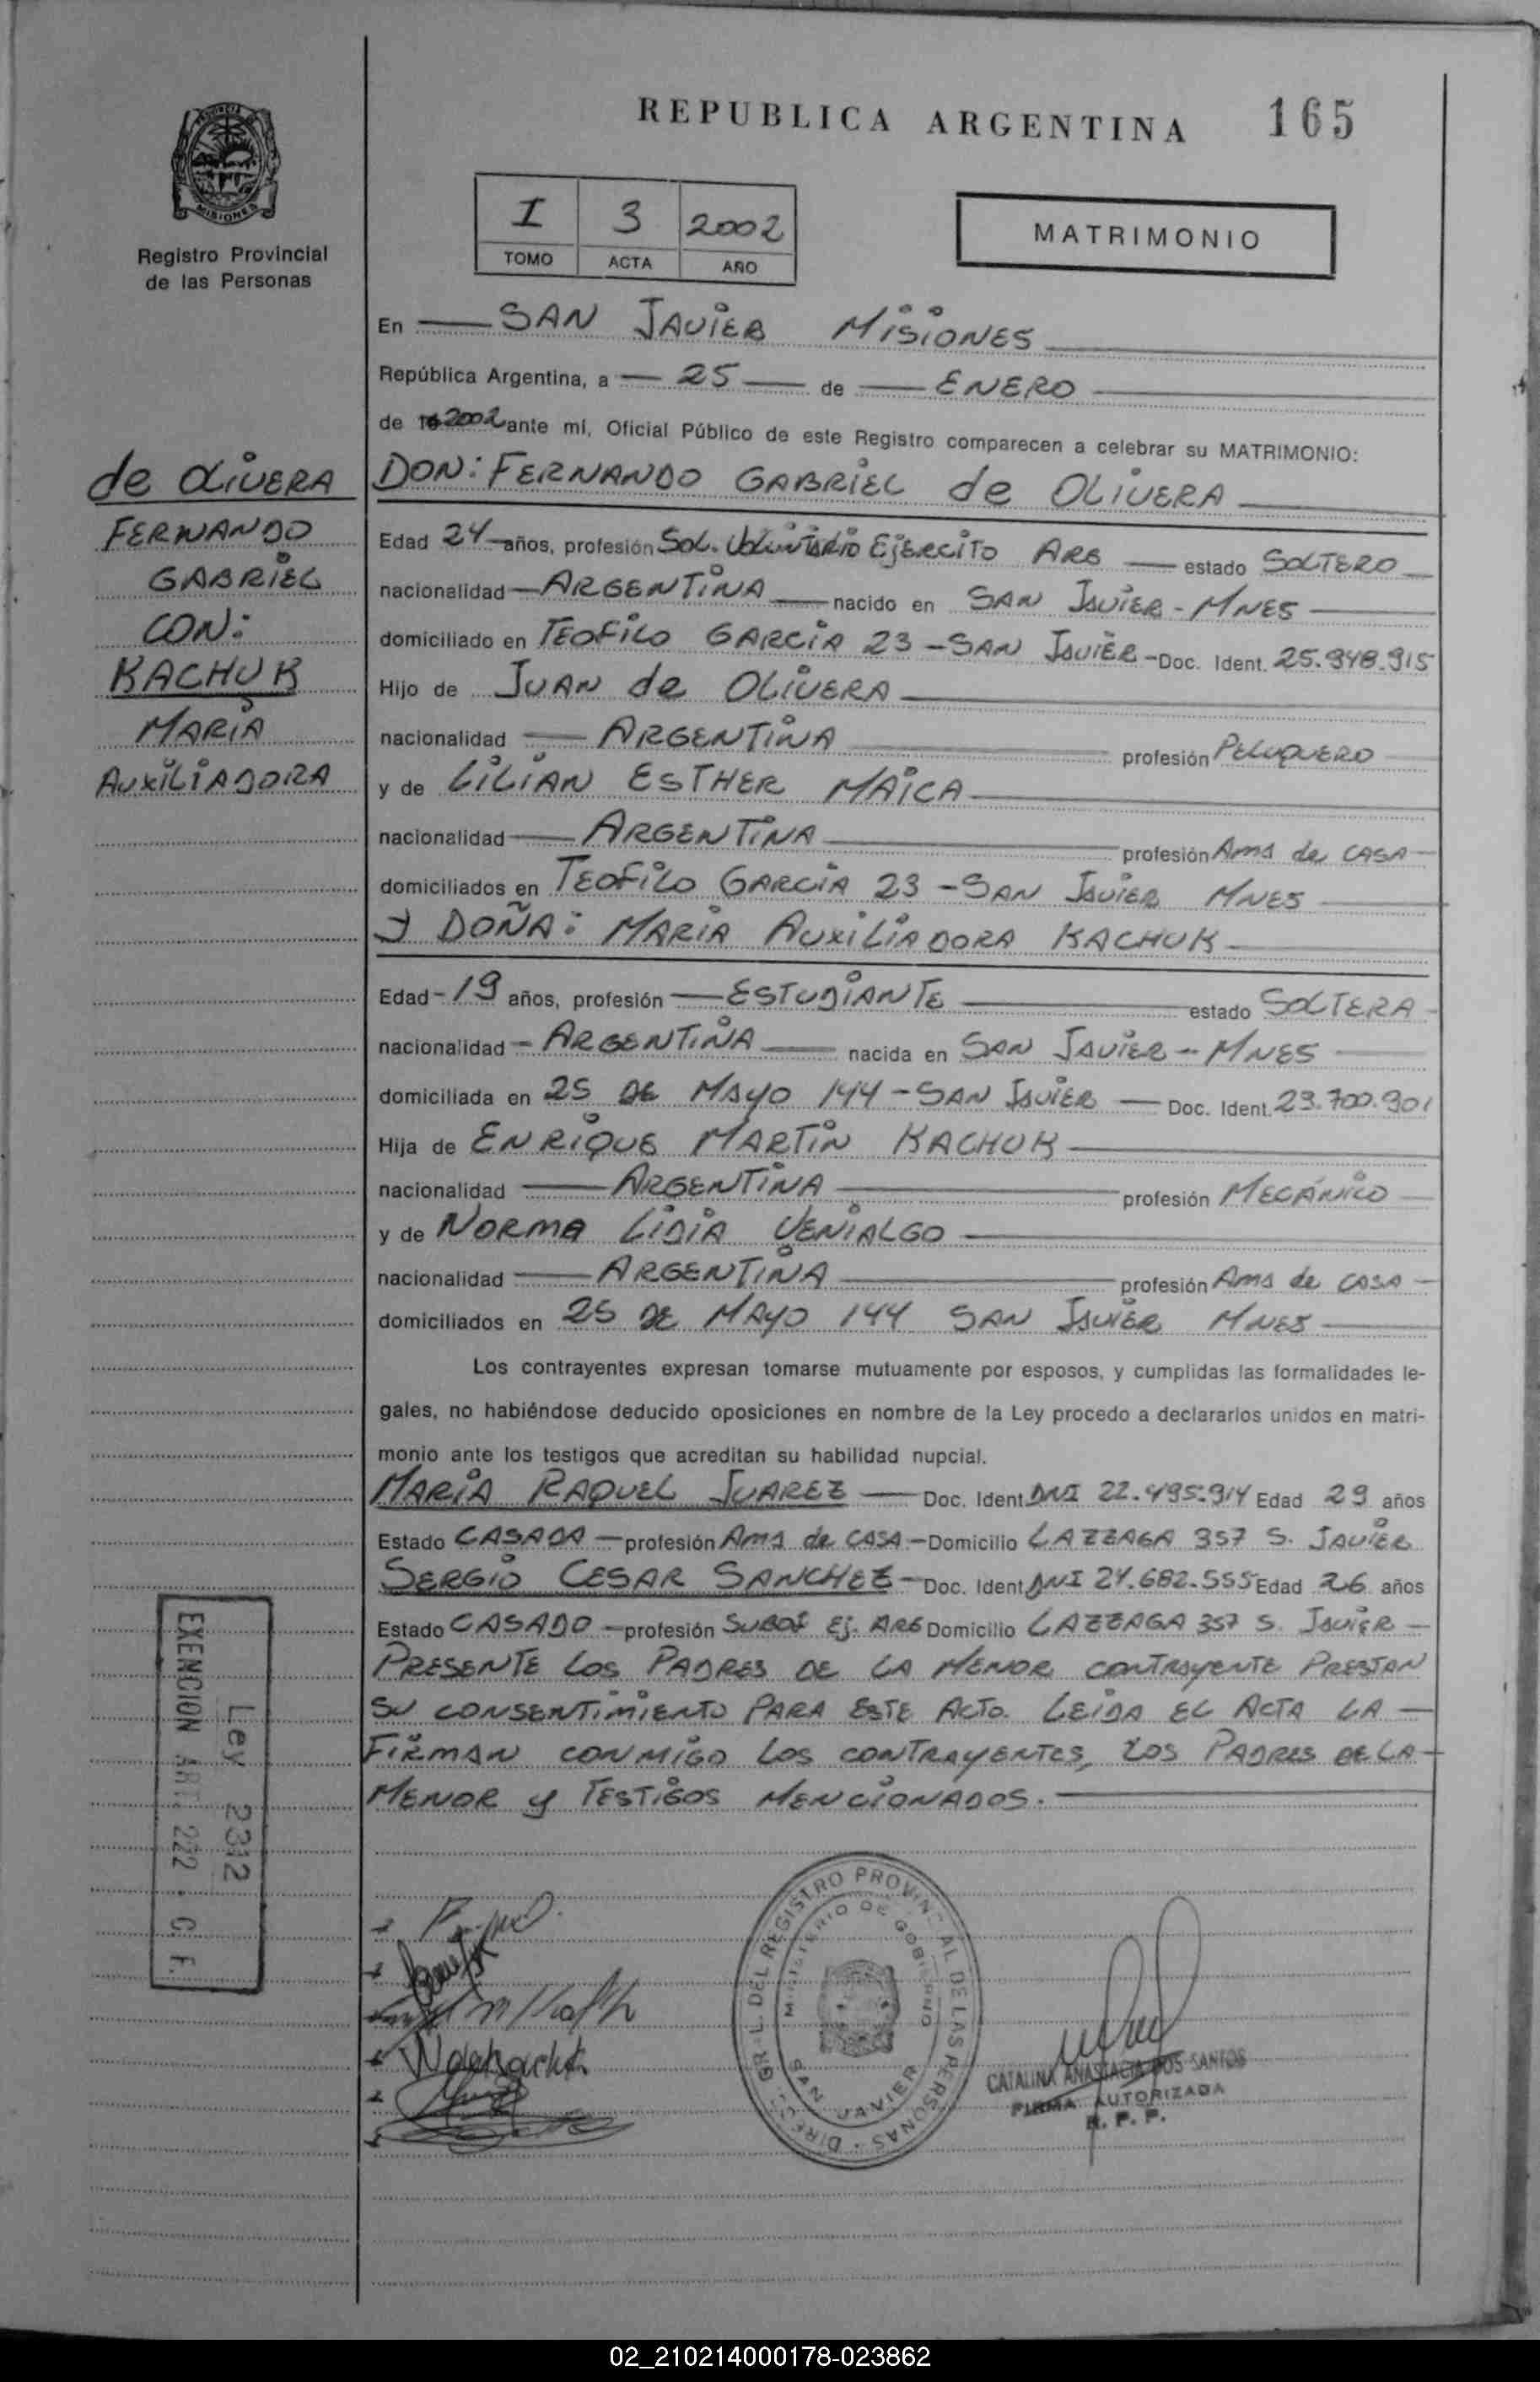 REPUBLICA ARGENTINA 165
PROVINCIA
MISIONES
Registro Provincial
de las Personas
I 3 2002
TOMO ACTA AÑO
MATRIMONIO
En SAN JAVIER MISIONES
República Argentina, a 25 de ENERO
de 2002 ante mí, Oficial Público de este Registro comparecen a celebrar su MATRIMONIO:
de OLIVERA
FERNANDO
GABRIEL
CON:
KACHUK
MARIA
AUXILIADORA
DON: FERNANDO GABRIEL de OLIVERA
Edad 24 años, profesión SOL. VOLUNTARIO EJERCITO ARG estado SOLTERO
nacionalidad ARGENTINA nacido en SAN JAVIER - MNES
domiciliado en TEOFILO GARCIA 23 - SAN JAVIER - Doc. Ident. 25.948.915
Hijo de JUAN de OLIVERA
nacionalidad ARGENTINA profesión PELUQUERO
y de LILIAN ESTHER MAICA
nacionalidad ARGENTINA profesión Ama de CASA
domiciliados en TEOFILO GARCIA 23 - SAN JAVIER MNES
Y DOÑA: MARIA AUXILIADORA KACHUK
Edad - 19 años, profesión ESTUDIANTE estado SOLTERA
nacionalidad - ARGENTINA nacida en SAN JAVIER - MNES
domiciliada en 25 DE MAYO 144 - SAN JAVIER Doc. Ident. 23.700.901
Hija de ENRIQUE MARTIN KACHUK
nacionalidad ARGENTINA profesión MECÁNICO
y de NORMA LIDIA VENIALGO
nacionalidad ARGENTINA profesión Ama de CASA
domiciliados en 25 DE MAYO 144 SAN JAVIER MNES
Los contrayentes expresan tomarse mutuamente por esposos, y cumplidas las formalidades le-
gales, no habiéndose deducido oposiciones en nombre de la Ley procedo a declararlos unidos en matri-
monio ante los testigos que acreditan su habilidad nupcial.
MARIA RAQUEL JUAREZ Doc. Ident. DNI 22.495.914 Edad 29 años
Estado CASADA profesión Ama de CASA - Domicilio LAZZAGA 357 S. JAVIER
SERGIO CESAR SANCHEZ - Doc. Ident. DNI 24.682.555 Edad 26 años
Estado CASADO - profesión SUBOF EJ. ARG Domicilio LAZZAGA 357 S. JAVIER
PRESENTE LOS PADRES DE LA MENOR CONTRAYENTE PRESTAN
SU CONSENTIMIENTO PARA ESTE ACTO. LEIDA EL ACTA LA
FIRMAN CONMIGO LOS CONTRAYENTES, LOS PADRES DE LA
MENOR y TESTIGOS MENCIONADOS.
Ley 2312
EXENCION ART. 222 - C. F.
DIRECC. GRAL. DEL REGISTRO PROVINCIAL DE LAS PERSONAS
MINISTERIO DE GOBIERNO
SAN JAVIER
CATALINA ANASTACIA DOS SANTOS
FIRMA AUTORIZADA
R. P. P.
02_210214000178-023862